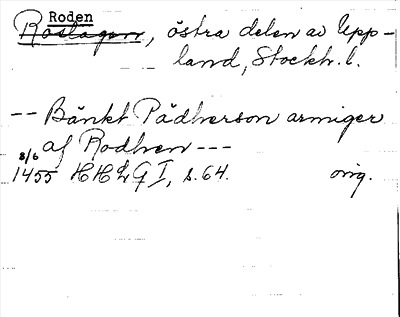 Roden
Roslagen, östra delen av Upp-
land, Stockh. l.
-- Bänkt Pädherson armiger
af Rodhen ---
8/6
1455 HHLGI, s. 64. orig.